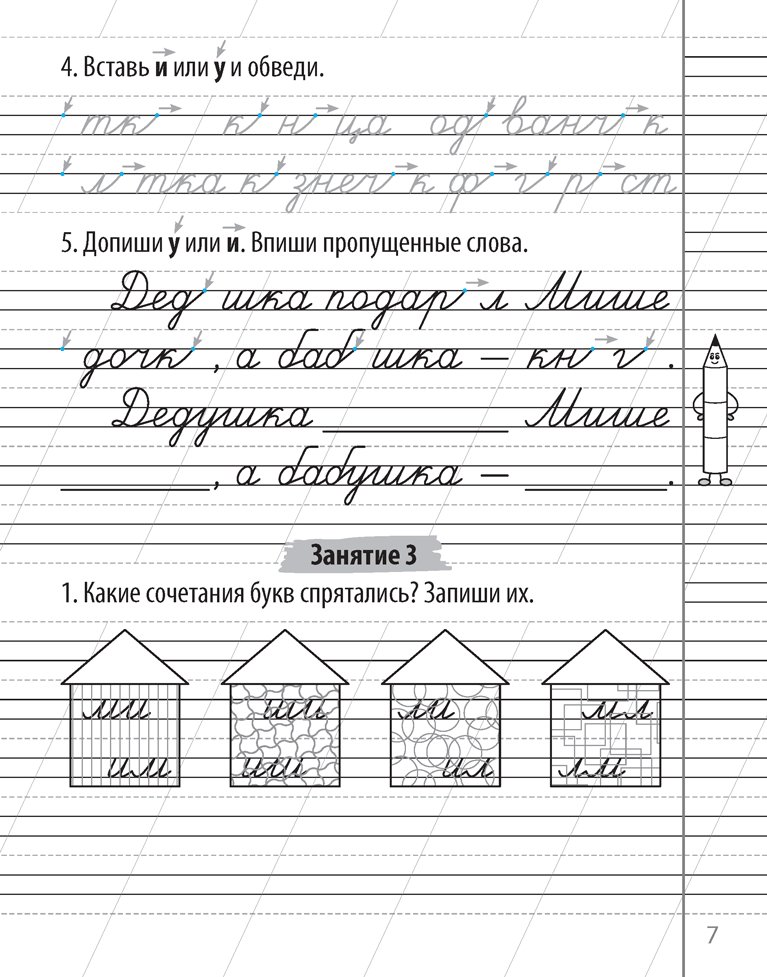 4. Вставь и или у и обведи.
тк к н ца од ванч к
л тка к знеч к ф г р ст
5. Допиши у или и. Впиши пропущенные слова.
Дед шка подар л Мише
дочк , а баб шка – кн г .
Дедушка ____________ Мише
__________, а бабушка – __________.
Занятие 3
1. Какие сочетания букв спрятались? Запиши их.
ми иш ли мл
им ши ил лм
7